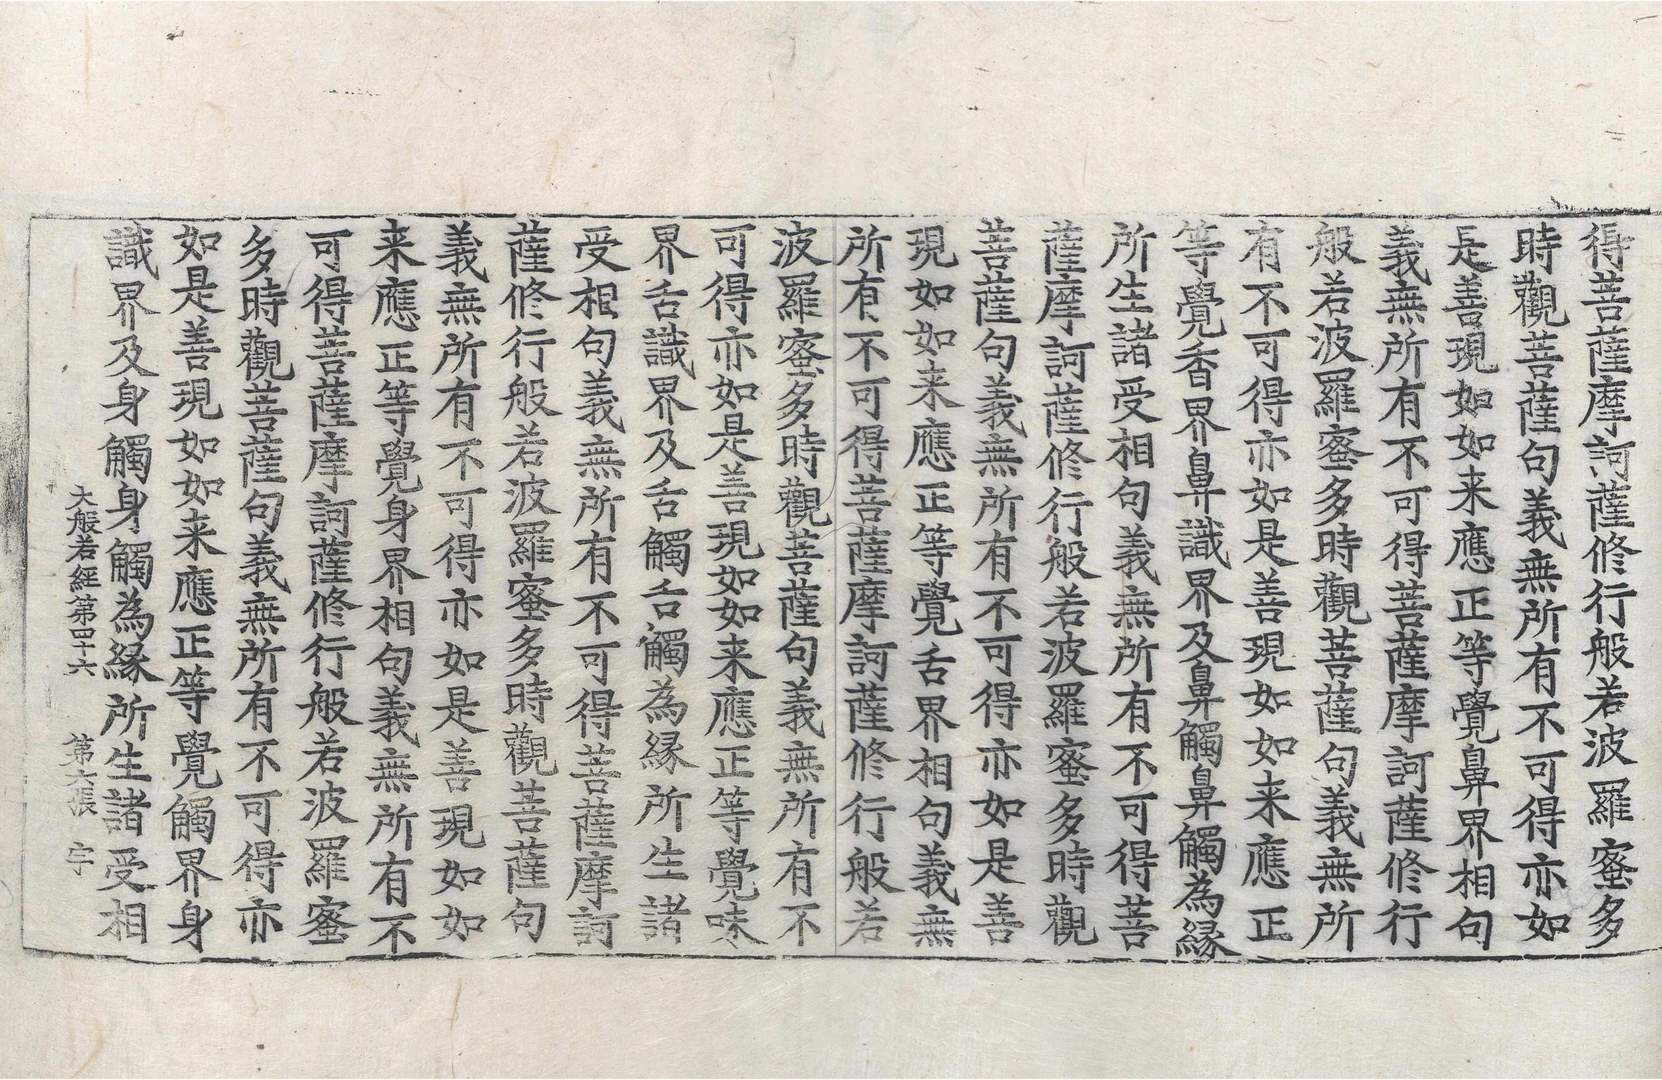 得菩薩摩訶薩修行般若波羅蜜多
時觀菩薩句義無所有不可得亦如
是善現如如来應正等覺鼻界相句
義無所有不可得菩薩摩訶薩修行
般若波羅蜜多時觀菩薩句義無所
有不可得亦如是善現如如来應正
等覺香界鼻識界及鼻觸鼻觸為緣
所生諸受相句義無所有不可得菩
薩摩訶薩修行般若波羅蜜多時觀
菩薩句義無所有不可得亦如是善
現如如来應正等覺舌界相句義無
所有不可得菩薩摩訶薩修行般若
波羅蜜多時觀菩薩句義無所有不
可得亦如是善現如如来應正等覺味
界舌識界及舌觸舌觸為緣所生諸
受相句義無所有不可得菩薩摩訶
薩修行般若波羅蜜多時觀菩薩句
義無所有不可得亦如是善現如如
来應正等覺身界相句義無所有不
可得菩薩摩訶薩修行般若波羅蜜
多時觀菩薩句義無所有不可得亦
如是善現如如来應正等覺觸界身
識界及身觸身觸為緣所生諸受相
大般若經第四十六 第六張 宇